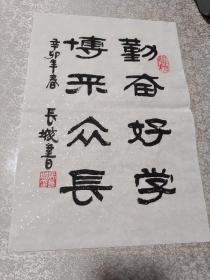 勤奋好学
博采众长
辛卯年春
长城书